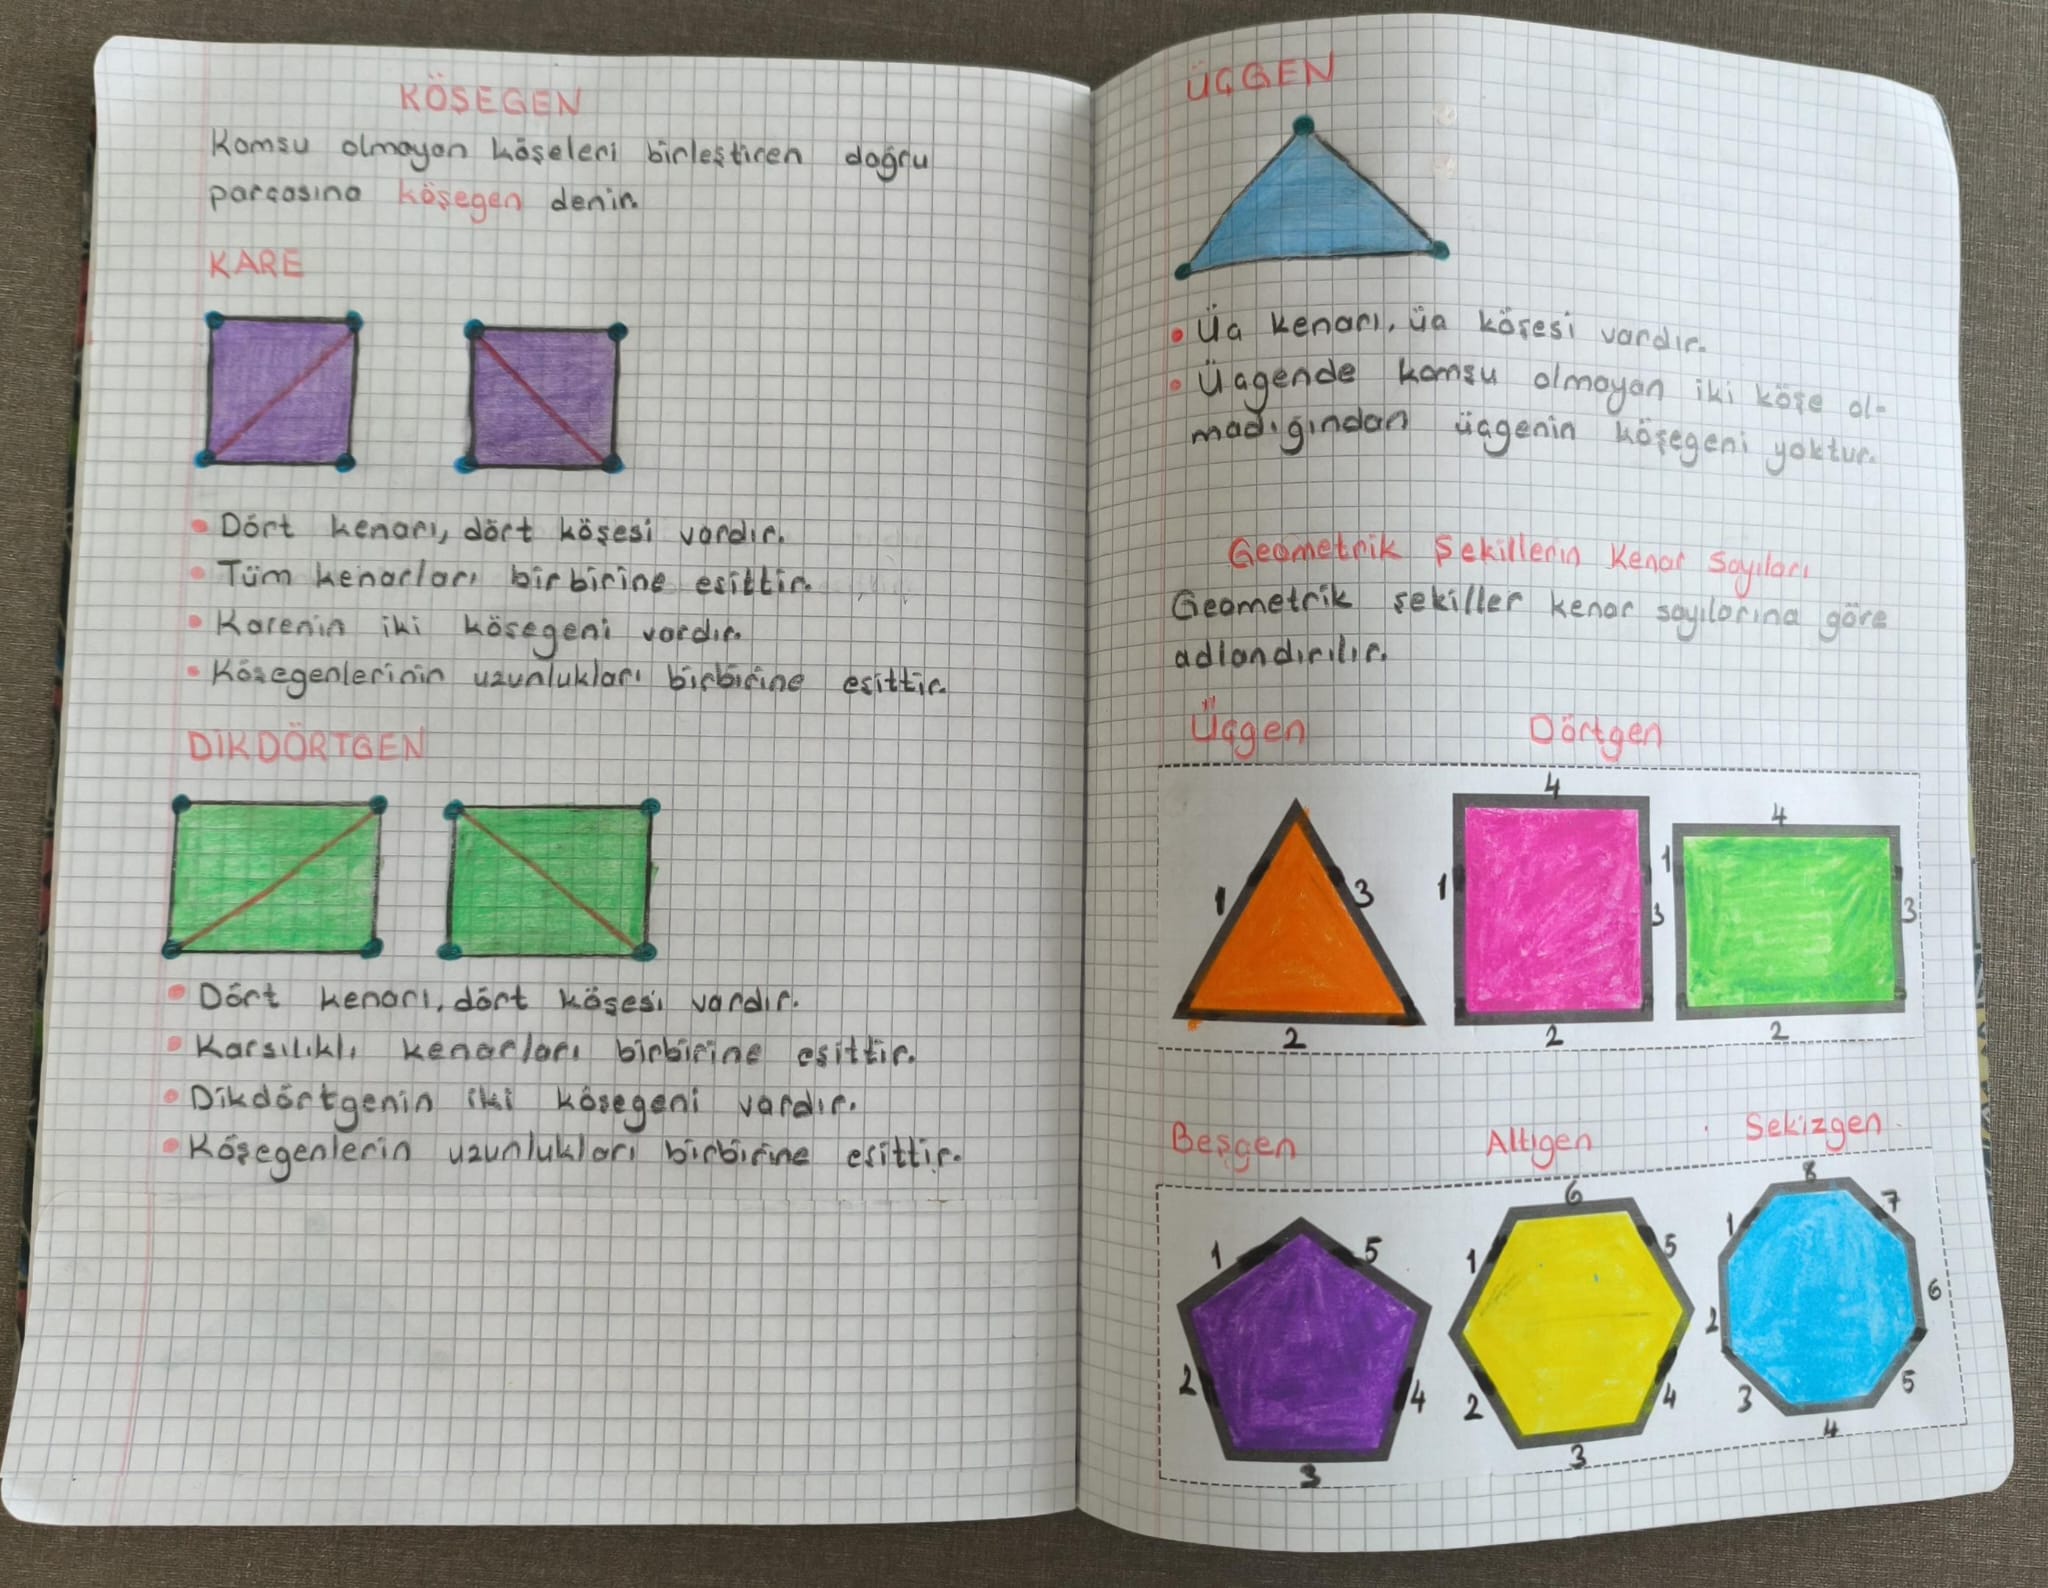 KÖŞEGEN
Komşu olmayan köşeleri birleştiren doğru
parçasına köşegen denir.
KARE
• Dört kenarı, dört köşesi vardır.
• Tüm kenarları birbirine eşittir.
• Karenin iki köşegeni vardır.
• Köşegenlerinin uzunlukları birbirine eşittir.
DİKDÖRTGEN
• Dört kenarı, dört köşesi vardır.
• Karşılıklı kenarları birbirine eşittir.
• Dikdörtgenin iki köşegeni vardır.
• Köşegenlerin uzunlukları birbirine eşittir.
ÜÇGEN
• Üç kenarı, üç köşesi vardır.
• Üçgende komşu olmayan iki köşe ol-
madığından üçgenin köşegeni yoktur.
Geometrik Şekillerin Kenar Sayıları
Geometrik şekiller kenar sayılarına göre
adlandırılır.
Üçgen Dörtgen
1 2 3
1 2 3 4
1 2 3 4
Beşgen Altıgen Sekizgen
1 2 3 4 5
1 2 3 4 5 6
1 2 3 4 5 6 7 8